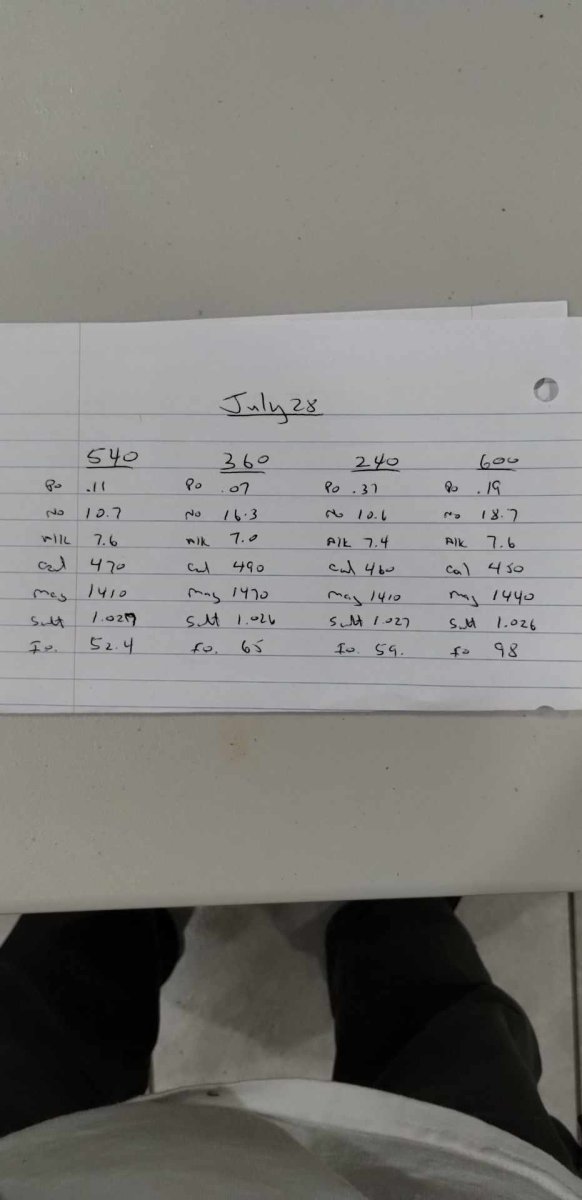 July 28
540 360 240 600
Po .11 Po .07 Po .31 Po .19
No 10.7 No 16.3 No 10.6 No 18.7
Alk 7.6 Alk 7.0 Alk 7.4 Alk 7.6
Cal 470 Cal 490 Cal 460 Cal 450
Mag 1410 Mag 1470 Mag 1410 Mag 1440
Salt 1.027 Salt 1.026 Salt 1.027 Salt 1.026
Io. 52.4 Io. 65 Io. 59. Io 98